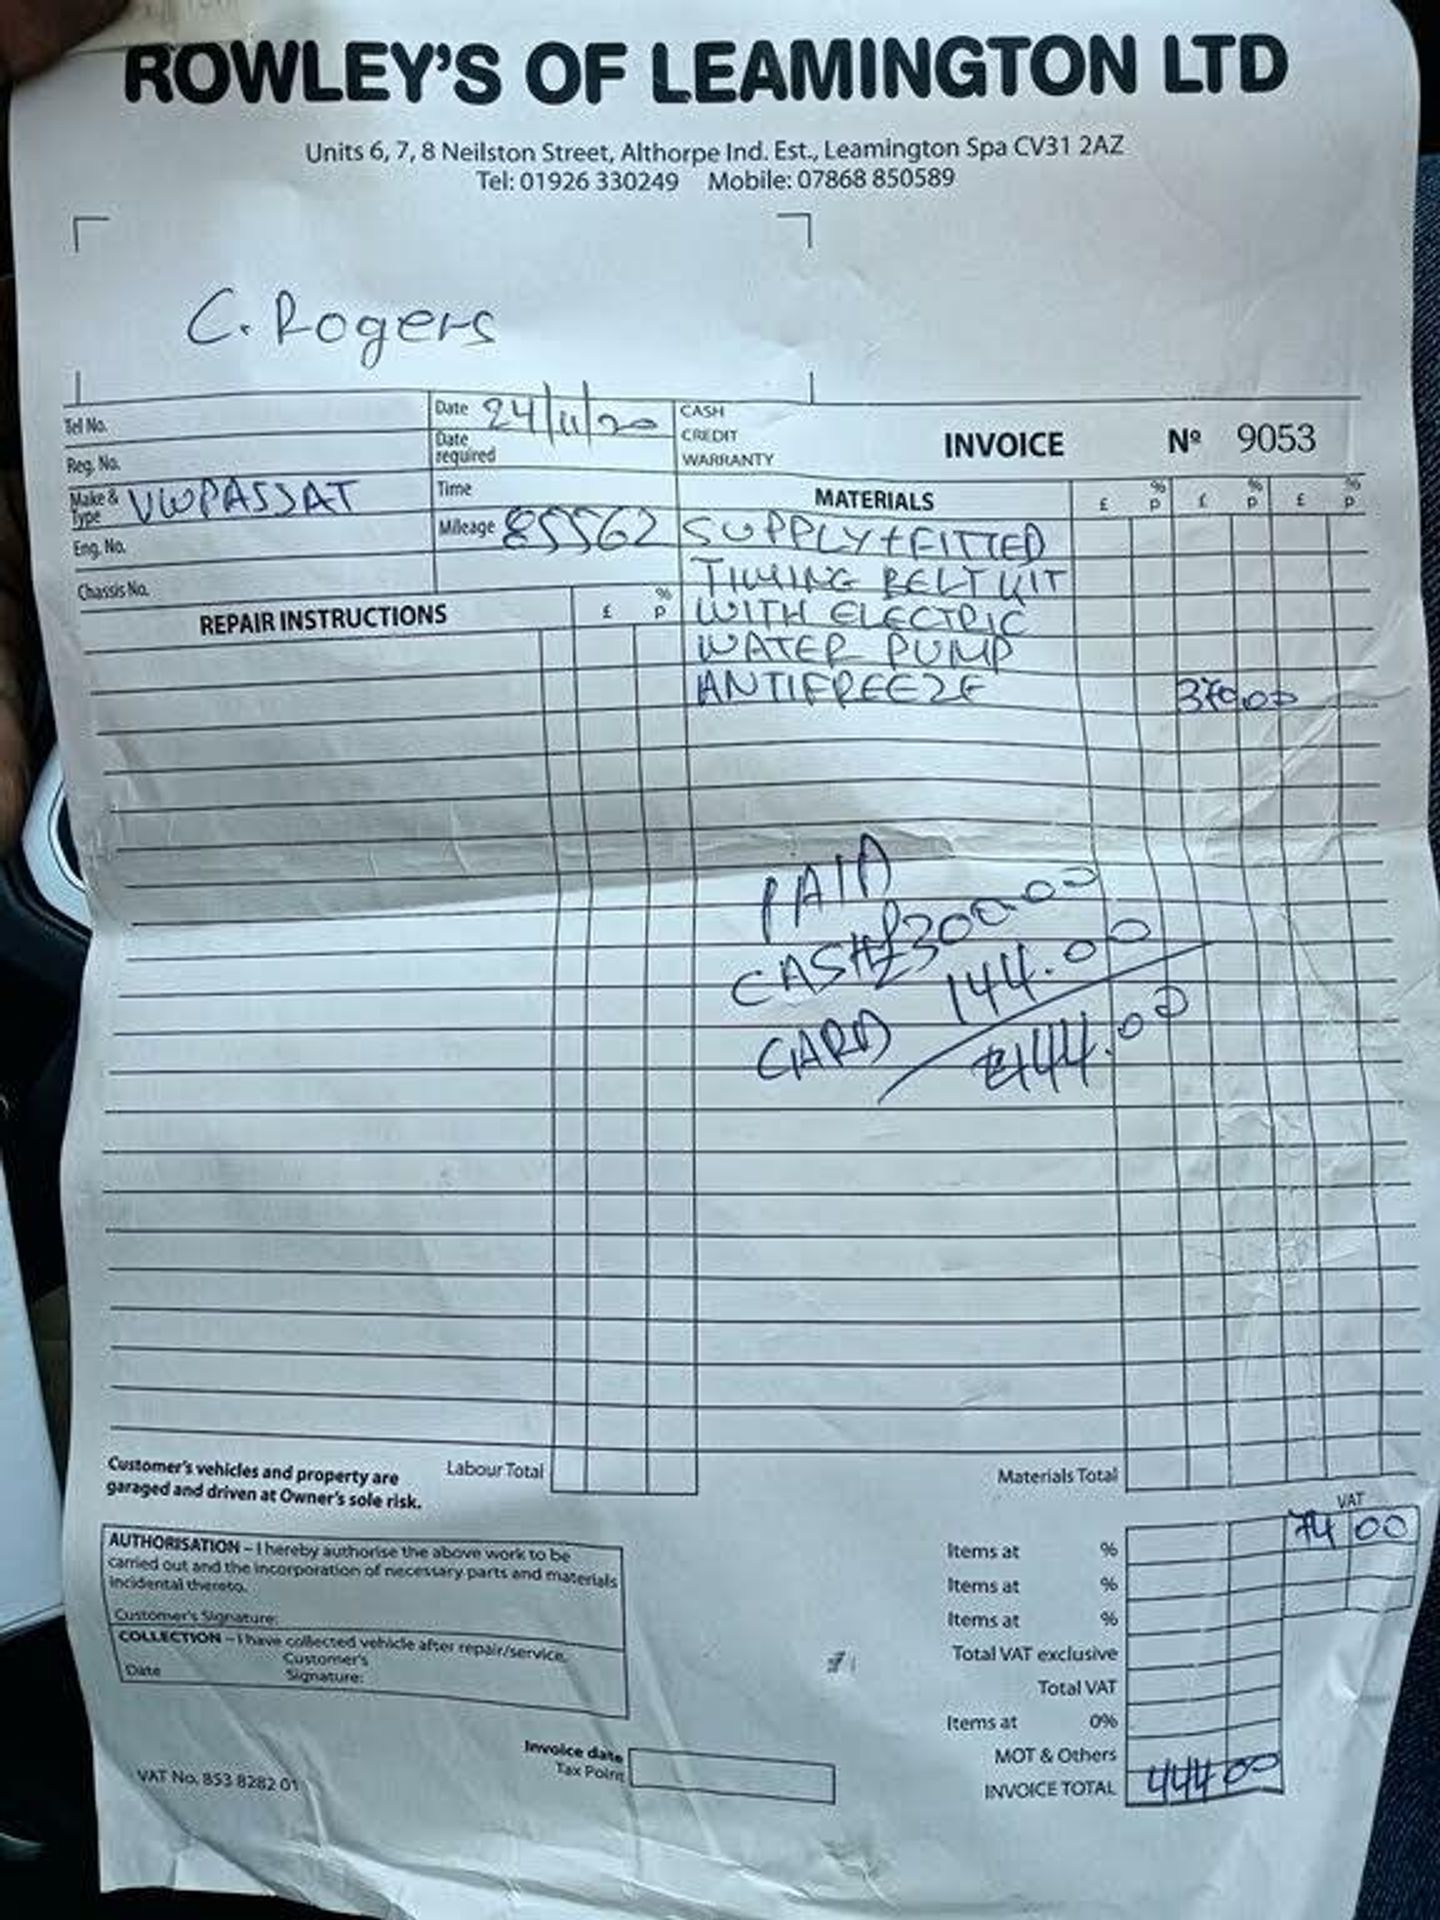 ROWLEY'S OF LEAMINGTON LTD
Units 6, 7, 8 Neilston Street, Althorpe Ind. Est., Leamington Spa CV31 2AZ
Tel: 01926 330249 Mobile: 07868 850589
C. Rogers
Tel No.
Reg. No.
Make & Type VW PASSAT
Eng. No.
Chassis No.
Date 24/11/20
Date required
Time
Mileage 85562
CASH
CREDIT
WARRANTY
INVOICE Nº 9053
MATERIALS £ % p £ % p £ % p
SUPPLY + FITTED
TIMING BELT KIT
WITH ELECTRIC
WATER PUMP
ANTIFREEZE 370.00
REPAIR INSTRUCTIONS £ % p
PAID
CASH £300.00
CARD 144.00
£444.00
Customer's vehicles and property are
garaged and driven at Owner's sole risk.
Labour Total
Materials Total
AUTHORISATION – I hereby authorise the above work to be
carried out and the incorporation of necessary parts and materials
incidental thereto.
Customer's Signature:
COLLECTION – I have collected vehicle after repair/service.
Date Customer's Signature:
VAT
Items at % 74 00
Items at %
Items at %
Total VAT exclusive
Total VAT
Items at 0%
MOT & Others
INVOICE TOTAL 444 00
Invoice date
Tax Point
VAT No. 853 8282 01